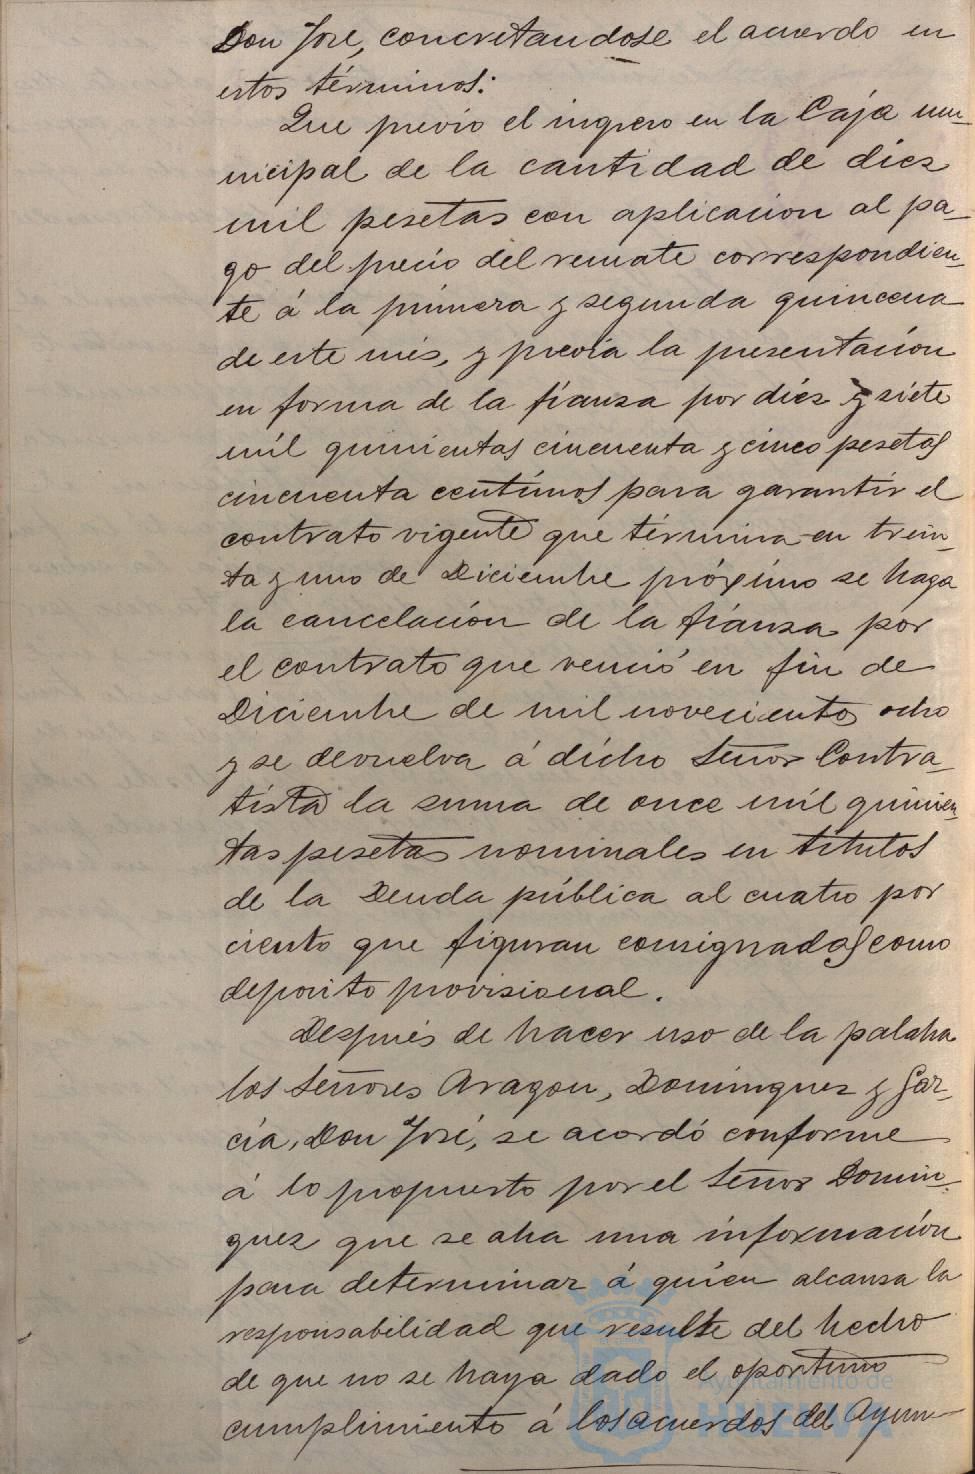 Don José, concretandose el acuerdo en
estos términos:
Que previo el ingreso en la Caja mu-
nicipal de la cantidad de diez
mil pesetas con aplicacion al pa-
go del precio del remate correspondien-
te á la primera y segunda quincena
de este més, y previa la presentación
en forma de la fianza por diéz y siete
mil quinientas cincuenta y cinco pesetas
cincuenta centimos para garantir el
contrato vigente que términa en trein-
ta y uno de Diciembre próximo se haga
la cancelación de la fianza por
el contrato que venció en fin de
Diciembre de mil novecientos ocho
y se devuelva á dicho Señor Contra-
tista la suma de once mil quinien-
tas pesetas nominales en titulos
de la Deuda pública al cuatro por
ciento que figuran consignadas como
deposito provisional.
Después de hacer uso de la palabra
los Señores Aragon, Dominguez y Gar-
cía, Don José, se acordó conforme
á lo propuesto por el Señor Domin-
guez que se abra una información
para determinar á quién alcanza la
responsabilidad que resulte del hecho
de que no se haya dado el oportuno
cumplimiento á los acuerdos del Ayun-
Ayuntamiento de
HUELVA